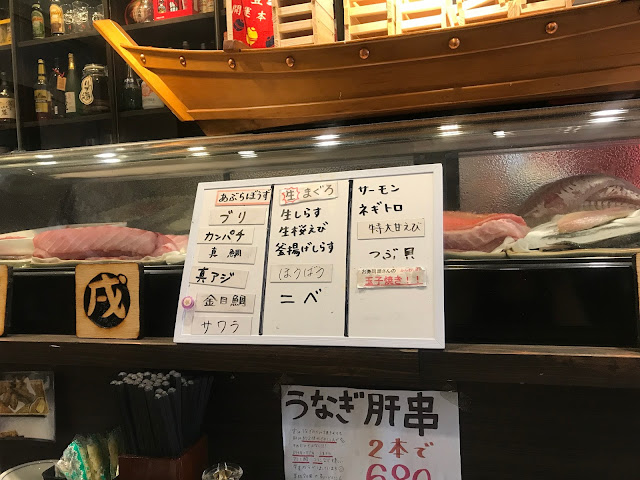 あぶらぼうず
ブリ
カンパチ
真鯛
真アジ
金目鯛
サワラ
生まぐろ
生しらす
生桜えび
釜揚げしらす
ほうぼう
ニベ
サーモン
ネギトロ
特大甘えび
つぶ貝
お寿司屋さんの
玉子焼き!!
戌
うなぎ肝串
2本で
680